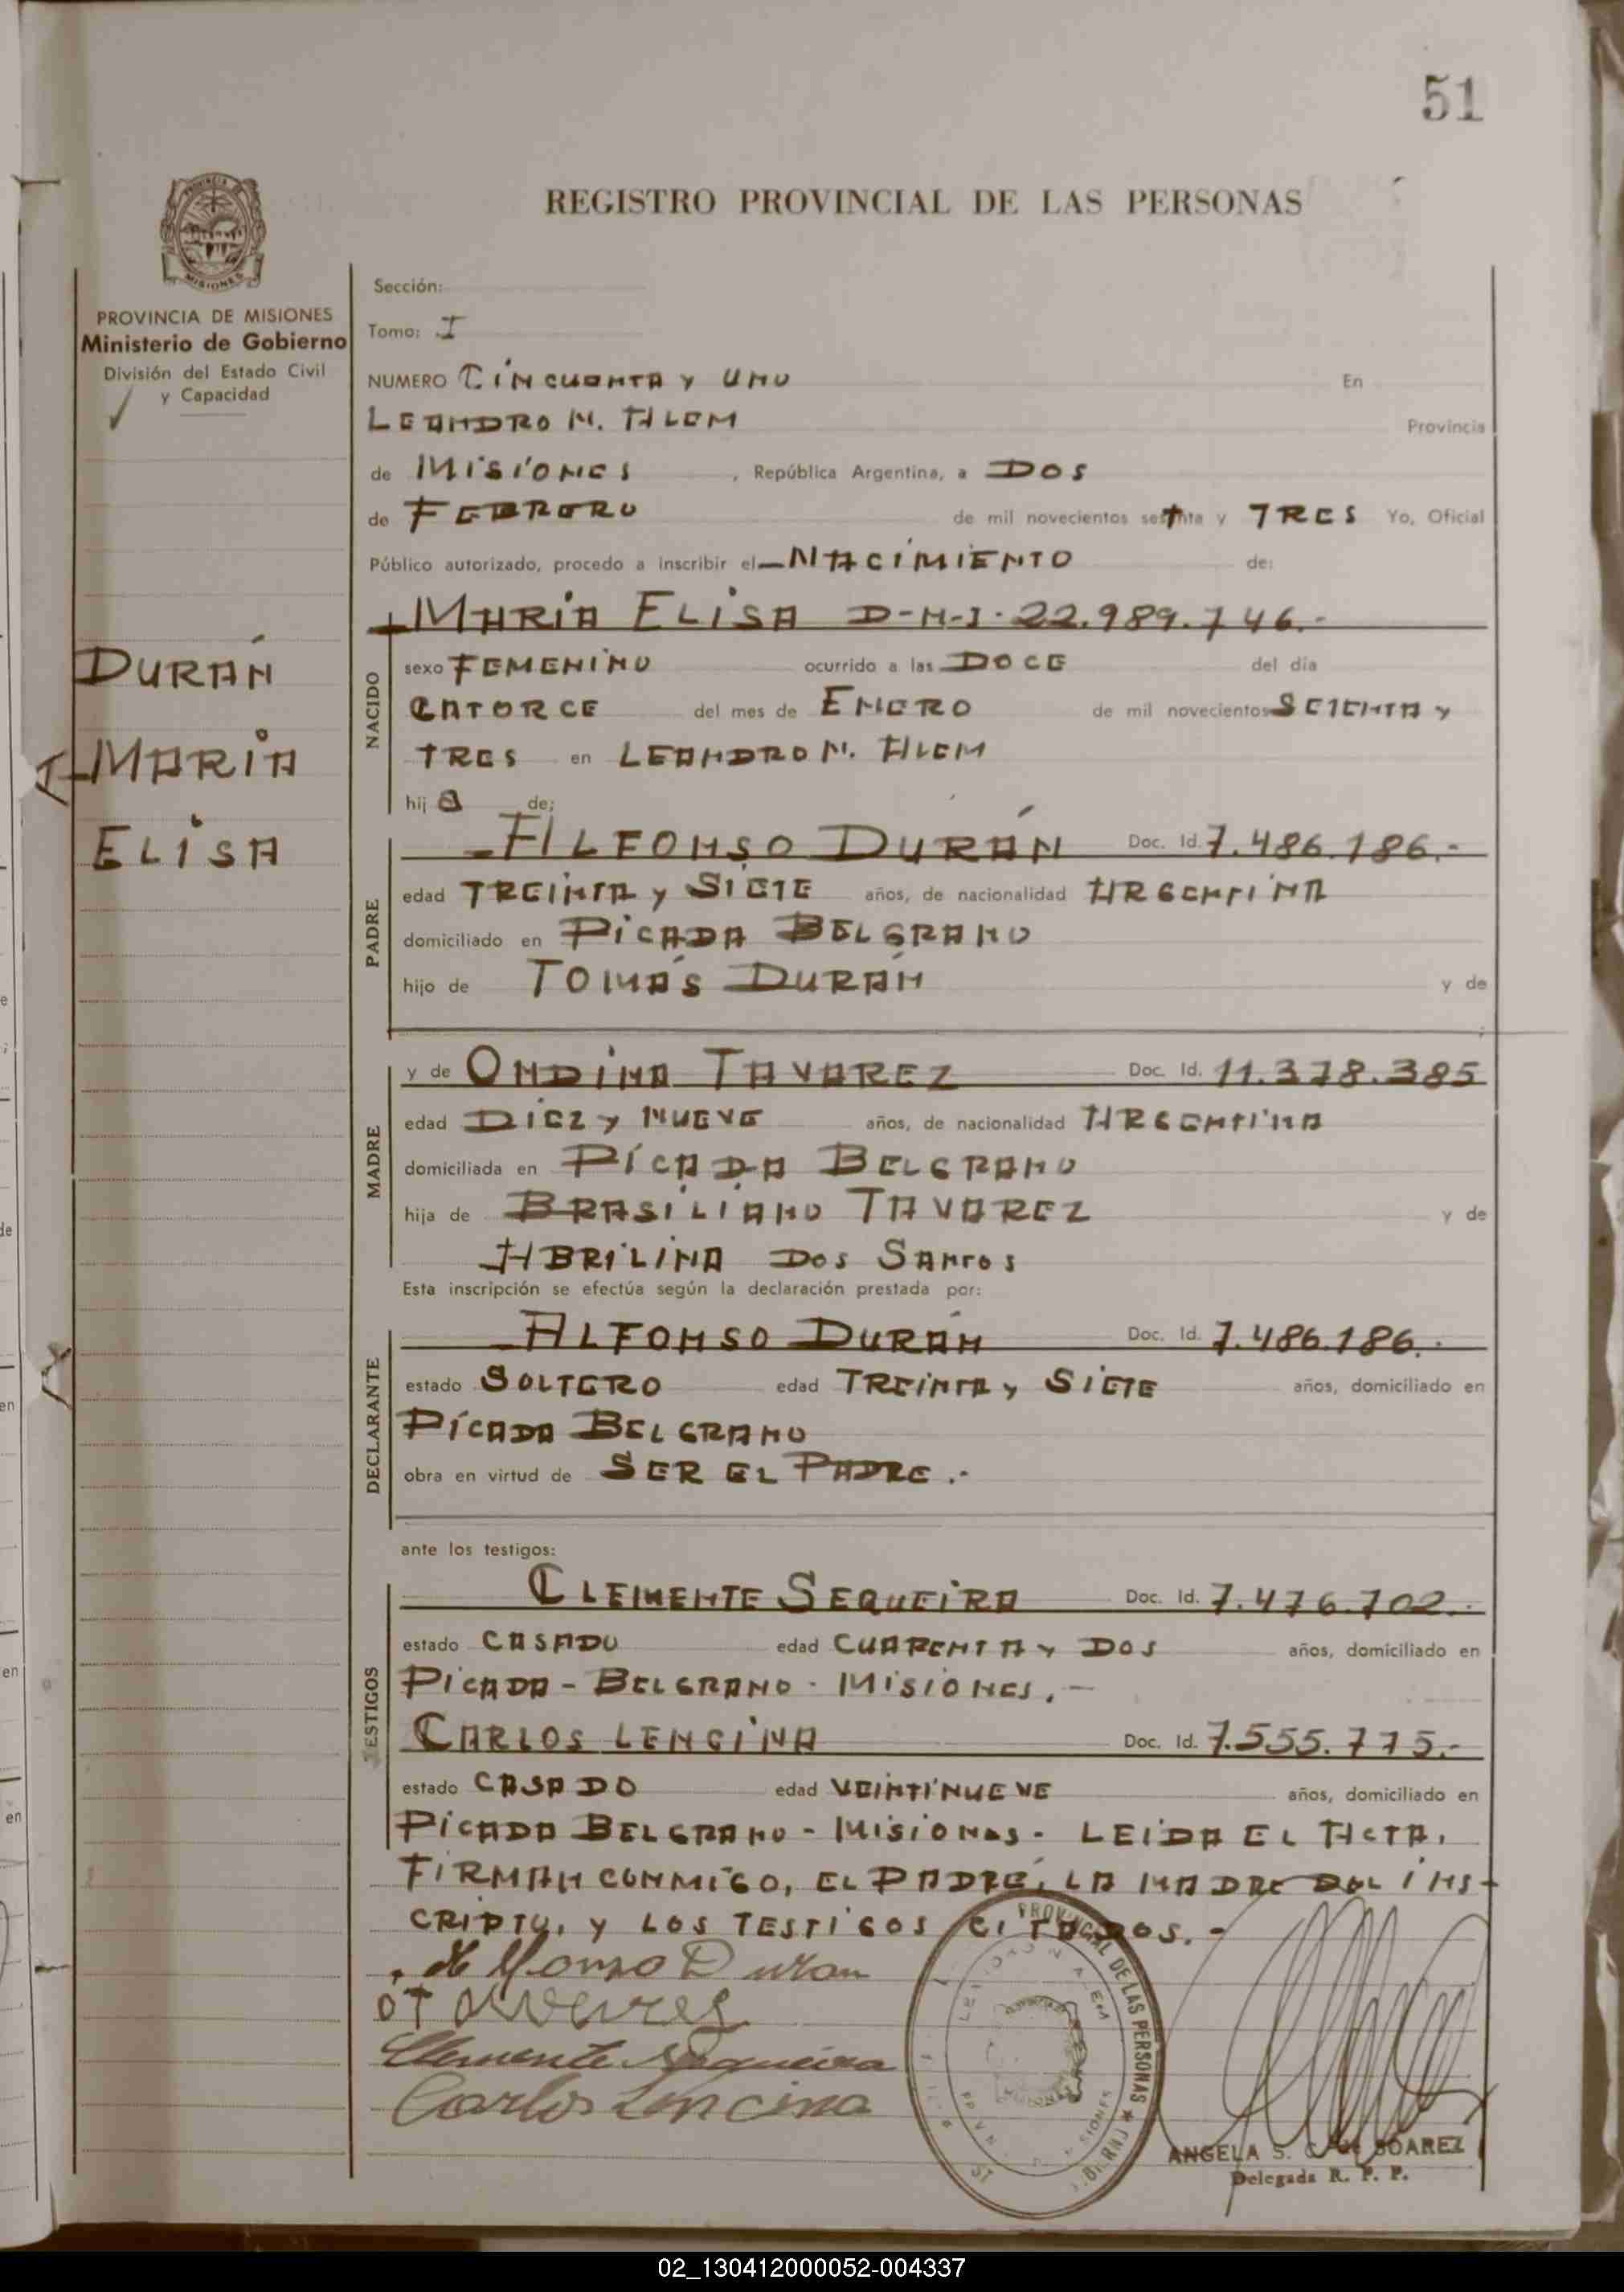 51
REGISTRO PROVINCIAL DE LAS PERSONAS
PROVINCIA DE MISIONES
Ministerio de Gobierno
División del Estado Civil
y Capacidad
DURÁN
MARIA
ELISA
Sección:
Tomo: I
NUMERO CINCUENTA Y UNO En
LEANDRO N. ALEM Provincia
de MISIONES, República Argentina, a DOS
de FEBRERO de mil novecientos setenta y TRES Yo, Oficial
Público autorizado, procedo a inscribir el NACIMIENTO de:
MARIA ELISA D-N-I-22.989.746.-
NACIDO
sexo FEMENINO ocurrido a las DOCE del día
CATORCE del mes de ENERO de mil novecientos SETENTA Y
TRES en LEANDRO N. ALEM
hija de:
PADRE
ALFONSO DURÁN Doc. Id. 7.486.186.-
edad TREINTA y SIETE años, de nacionalidad ARGENTINA
domiciliado en PICADA BELGRANO
hijo de TOMÁS DURÁN y de
MADRE
y de ONDINA TAVAREZ Doc. Id. 11.378.385
edad DIEZ y NUEVE años, de nacionalidad ARGENTINA
domiciliada en PICADA BELGRANO
hija de BRASILIANO TAVAREZ y de
ABRILINA DOS SANTOS
Esta inscripción se efectúa según la declaración prestada por:
DECLARANTE
ALFONSO DURÁN Doc. Id. 7.486.186.-
estado SOLTERO edad TREINTA y SIETE años, domiciliado en
PICADA BELGRANO
obra en virtud de SER EL PADRE.-
ante los testigos:
TESTIGOS
CLEMENTE SEQUEIRA Doc. Id. 7.476.702.-
estado CASADO edad CUARENTA y DOS años, domiciliado en
PICADA - BELGRANO - MISIONES.-
CARLOS LENCINA Doc. Id. 7.555.775.-
estado CASADO edad VEINTINUEVE años, domiciliado en
PICADA BELGRANO - MISIONES - LEIDA EL ACTA,
FIRMAN CONMIGO, EL PADRE, LA MADRE DEL INS-
CRIPTO, Y LOS TESTIGOS CITADOS.-
Alfonso Duran
O Tavares
Clemente Sequeira
Carlos Lencina
PROVINCIAL DE LAS PERSONAS
ANGELA S. C. de SOAREZ
Delegada R. P. P.
02_130412000052-004337